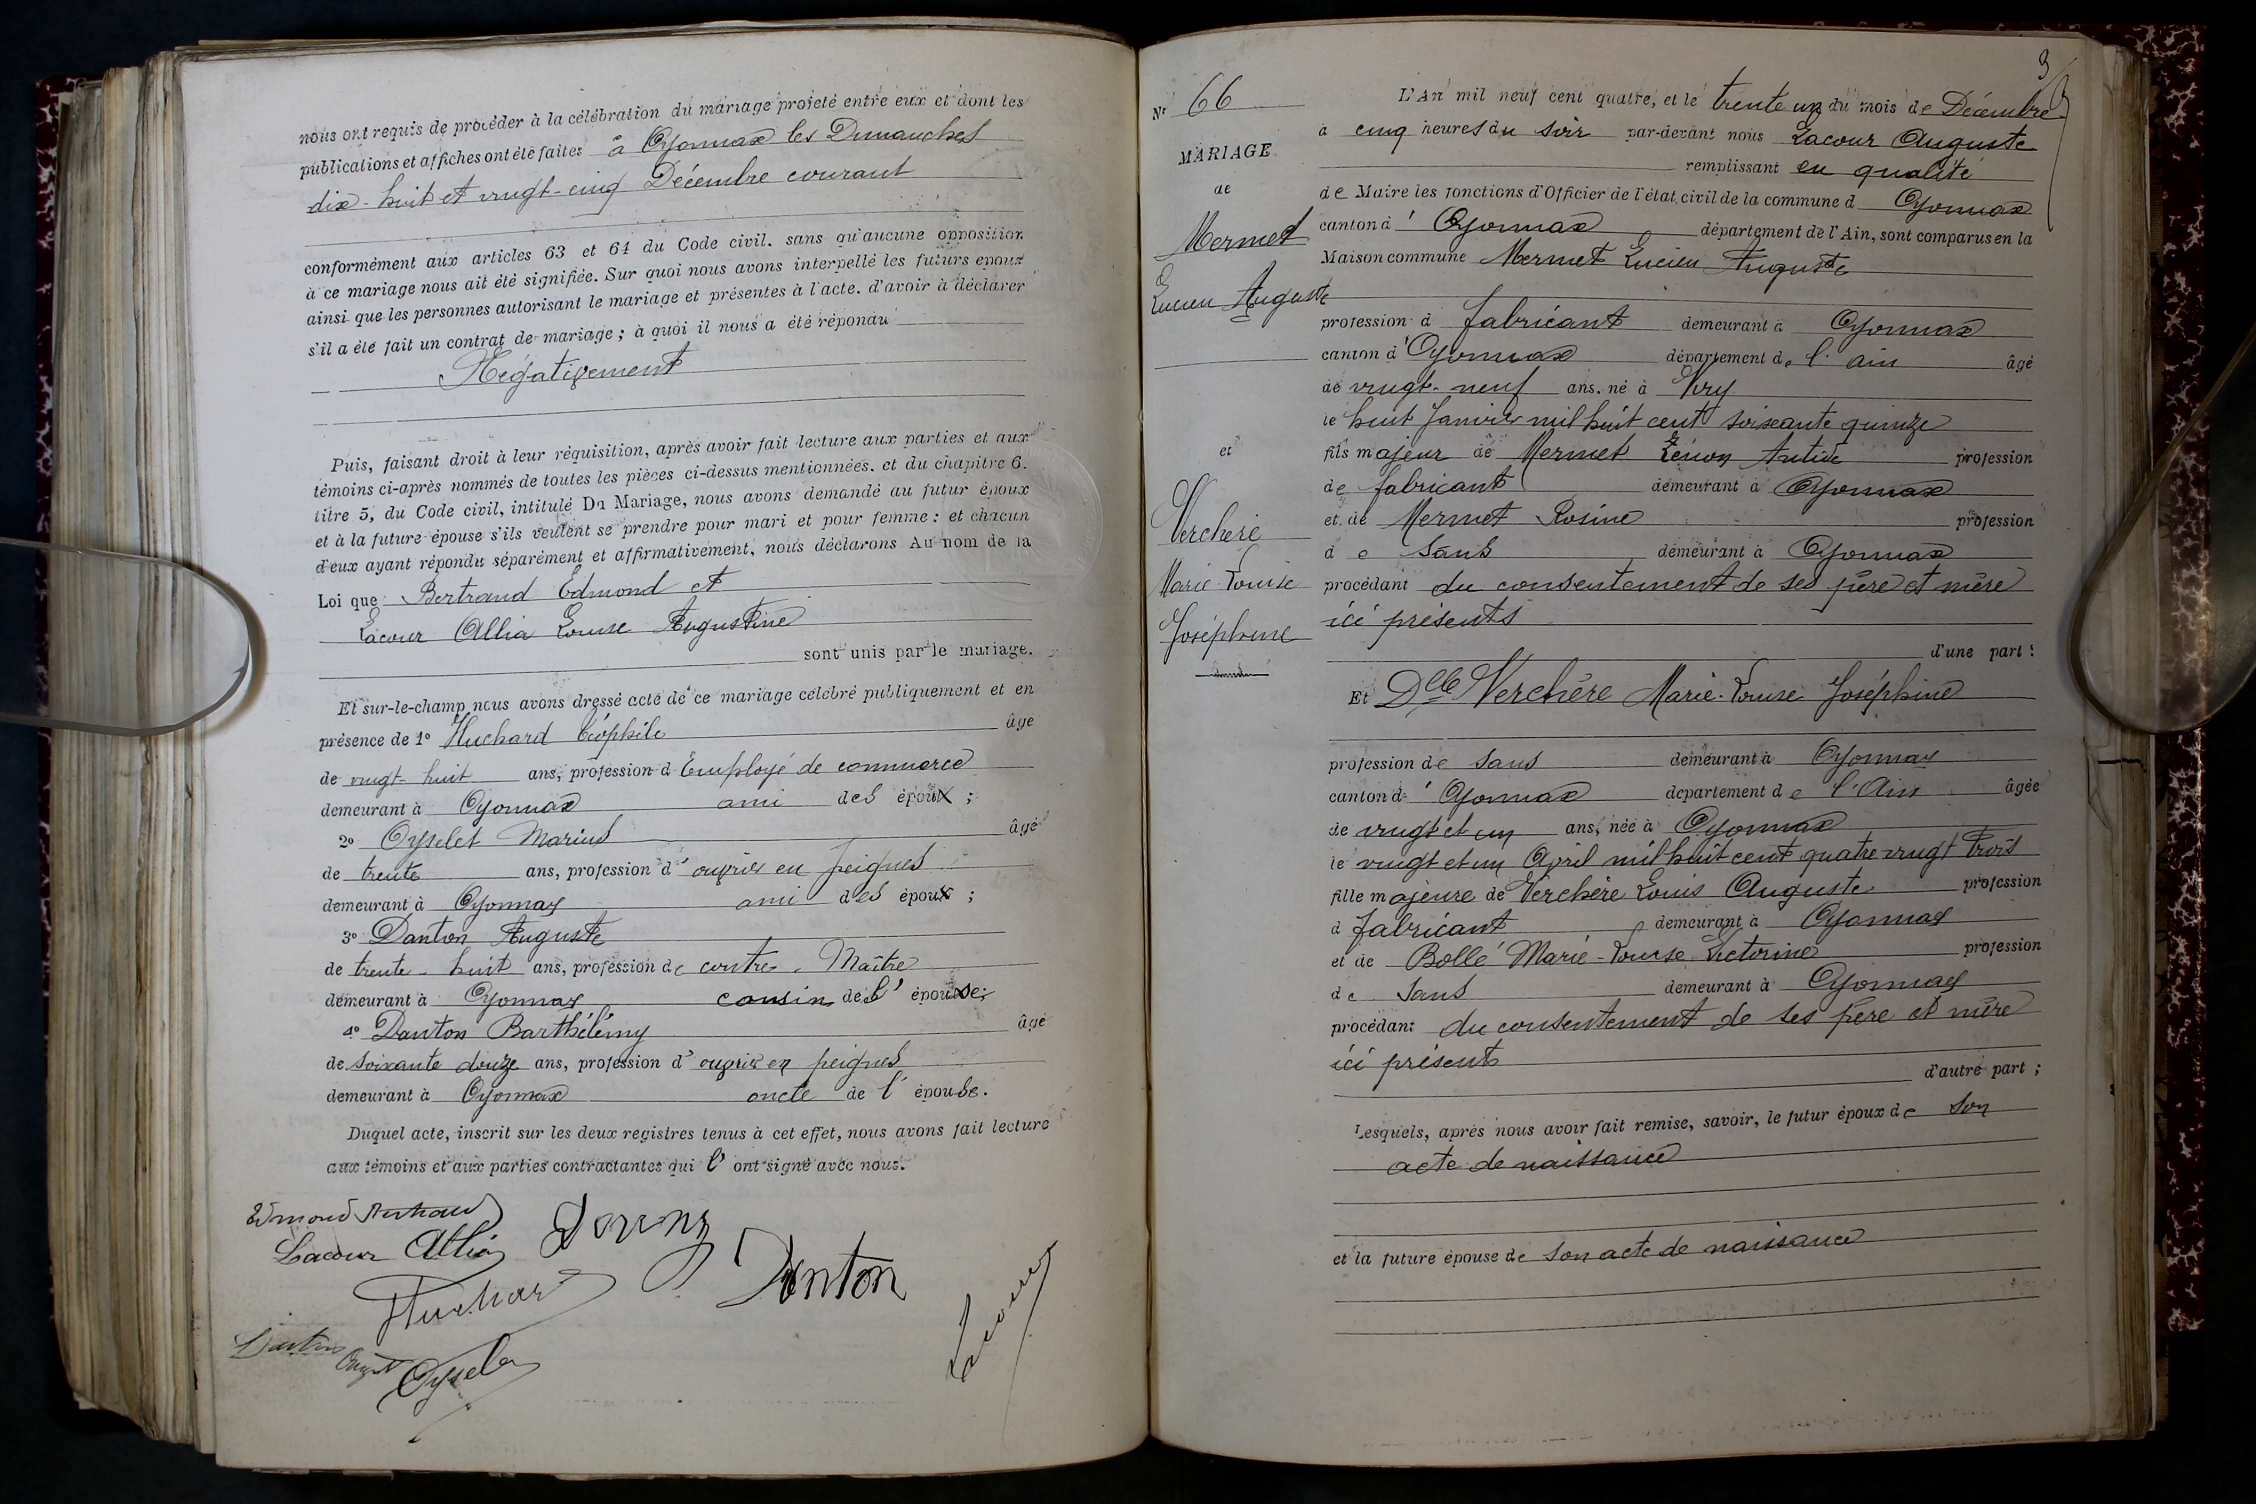 nous ont requis de procéder à la célébration du mariage projeté entre eux et dont les
publications et affiches ont été faites à Oyonnax les Dimanches
dix-huit et vingt-cinq Décembre courant
conformément aux articles 63 et 64 du Code civil. sans qu'aucune opposition
à ce mariage nous ait été signifiée. Sur quoi nous avons interpellé les futurs epoux
ainsi que les personnes autorisant le mariage et présentes à l'acte. d'avoir à déclarer
s'il a été fait un contrat de mariage ; à quoi il nous a été répondu
Négativement
Puis, faisant droit à leur réquisition, après avoir fait lecture aux parties et aux
témoins ci-après nommés de toutes les pièces ci-dessus mentionnées. et du chapitre 6.
titre 5, du Code civil, intitulé Du Mariage, nous avons demandé au futur époux
et à la future épouse s'ils veulent se prendre pour mari et pour femme : et chacun
d'eux ayant répondu séparément et affirmativement, nous déclarons Au nom de la
Loi que Bertrand Edmond et
Lacour Allia Louise Augustine
sont unis par le mariage.
Et sur-le-champ nous avons dressé acte de ce mariage célébré publiquement et en
présence de 1º Huchard Céophile âge
de vingt-huit ans, profession d Employé de commerce
demeurant à Oyonnax ami des époux ;
2º Oyselet Marius âgé
de trente ans, profession d' ouvrier en peignes
demeurant à Oyonnax ami des époux ;
3º Danton Auguste
de trente-huit ans, profession de contre-Maître
demeurant à Oyonnax cousin de l' épouse ;
4º Danton Barthélémy âgé
de soixante douze ans, profession d' ouvrier en peignes
demeurant à Oyonnax oncle de l' épouse.
Duquel acte, inscrit sur les deux registres tenus à cet effet, nous avons fait lecture
aux témoins et aux parties contractantes qui l' ont signé avec nous.
Edmond Bertrand
Lacour Allia
Huchard
Danton
Danton Augte
Oysel
Lacour
3
Nº 66
MARIAGE
de
Mermet
Lucien Auguste
et
Verchère
Marie-Louise
Joséphine
L'An mil neuf cent quatre, et le trente un du mois de Décembre
à cinq heures du soir par-devant nous Lacour Auguste
remplissant en qualité
de Maire les fonctions d'Officier de l'état civil de la commune d Oyonnax
canton d' Oyonnax département de l'Ain, sont comparus en la
Maison commune Mermet Lucien Auguste
profession d fabricant demeurant à Oyonnax
canton d' Oyonnax département de l'ain âgé
de vingt-neuf ans. né à Viry
le huit Janvier mil huit cent soixante quinze
fils majeur de Mermet Zénon Antide profession
de fabricant demeurant à Oyonnax
et de Mermet Rosine profession
d e sans demeurant à Oyonnax
procédant du consentement de ses père et mère
ici présents
d'une part :
Et Delle Verchère Marie-Louise Joséphine
profession de sans demeurant à Oyonnax
canton d' Oyonnax departement de l'Ain âgée
de vingt et un ans, née à Oyonnax
le vingt et un Avril mil huit cent quatre vingt trois
fille majeure de Verchère Louis Auguste profession
d fabricant demeurant à Oyonnax
et de Bollé Marie-Louise Victorine profession
de sans demeurant à Oyonnax
procédant du consentement de ses père et mère
ici présents
d'autre part ;
Lesquels, après nous avoir fait remise, savoir, le futur époux de son
acte de naissance
et la future épouse de son acte de naissance